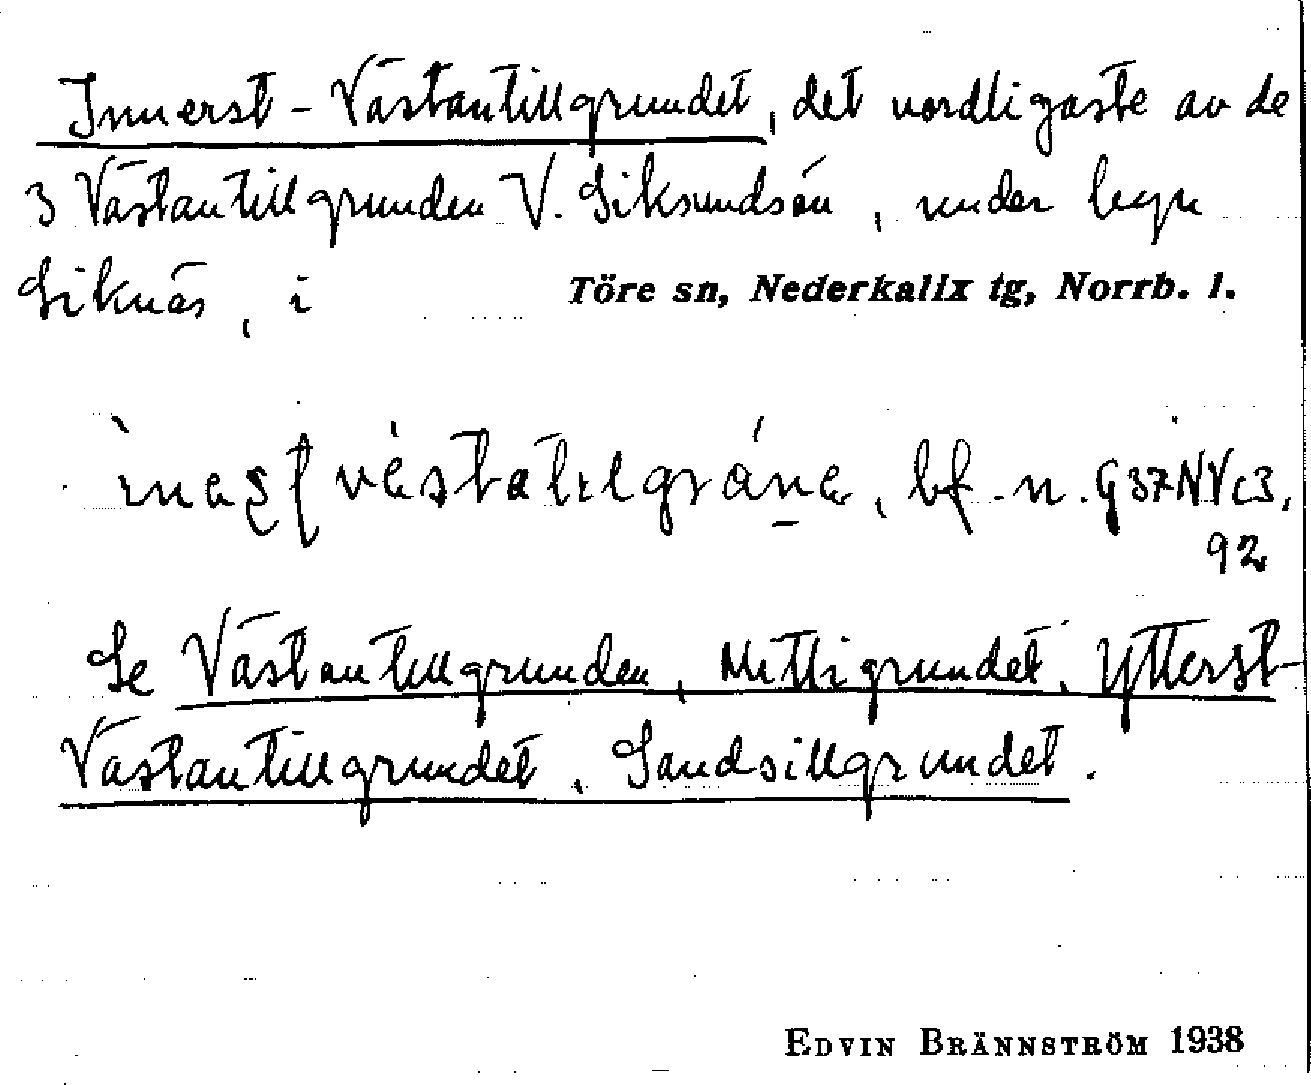 Innerst-Västantillgrundet, det nordligaste av de
3 Västantillgrunden V. Siksundsön, under byn
Siknäs, i Töre sn, Nederkalix tg, Norrb. l.
bf. n. G37NVc3,
92
Se Västantillgrunden, Mittigrundet, Ytterst-
Västantillgrundet, Sandsillgrundet.
EDVIN BRÄNNSTRÖM 1938